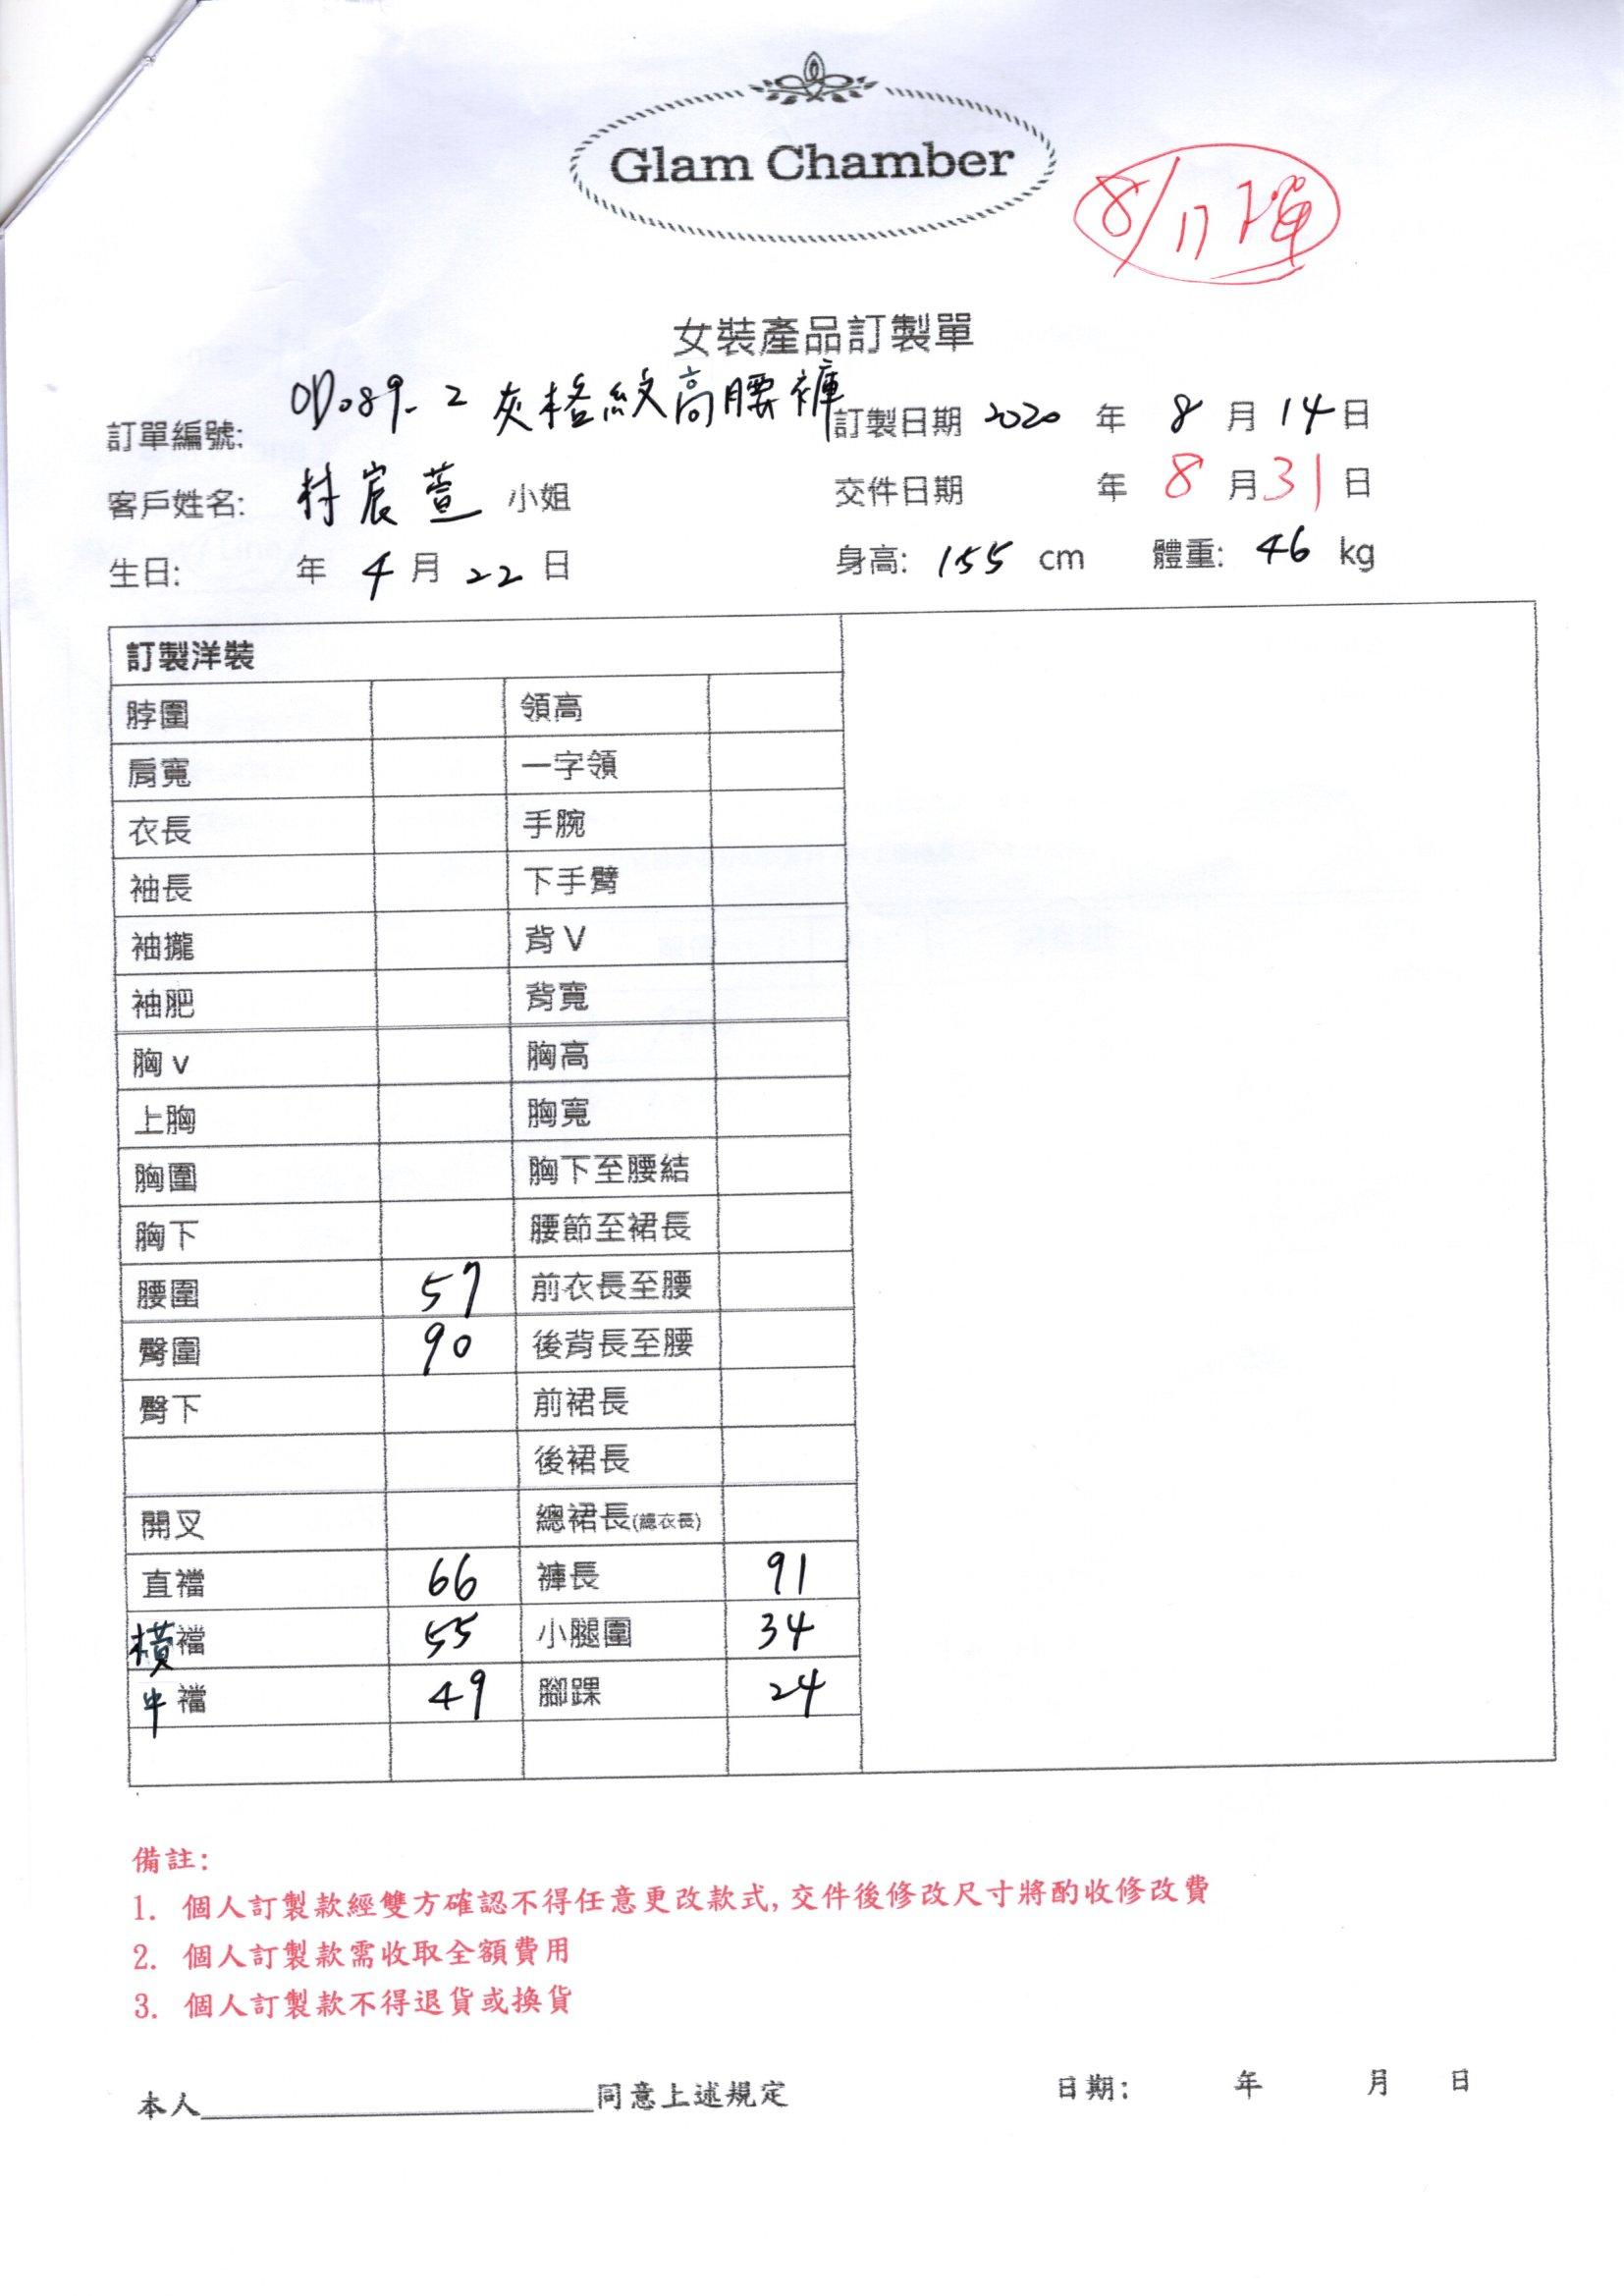 Glam Chamber
8/17
女裝產品訂製單
訂單編號: OD089-2 灰格紋高腰褲 訂製日期 2020 年 8 月 14 日
客戶姓名: 宸萱 小姐 交件日期 年 8 月 31 日
生日: 年 4 月 22 日 身高: 155 cm 體重: 46 kg
訂製洋裝
脖圍 領高
肩寬 一字領
衣長 手腕
袖長 下手臂
袖攏 背 V
袖肥 背寬
胸 v 胸高
上胸 胸寬
胸圍 胸下至腰結
胸下 腰節至裙長
腰圍 57 前衣長至腰
臀圍 90 後背長至腰
臀下 前裙長
後裙長
開叉 總裙長(總衣長)
直襠 66 褲長 91
橫襠 55 小腿圍 34
牛襠 49 腳踝 24
備註:
1. 個人訂製款經雙方確認不得任意更改款式, 交件後修改尺寸將酌收修改費
2. 個人訂製款需收取全額費用
3. 個人訂製款不得退貨或換貨
本人____________同意上述規定 日期: 年 月 日